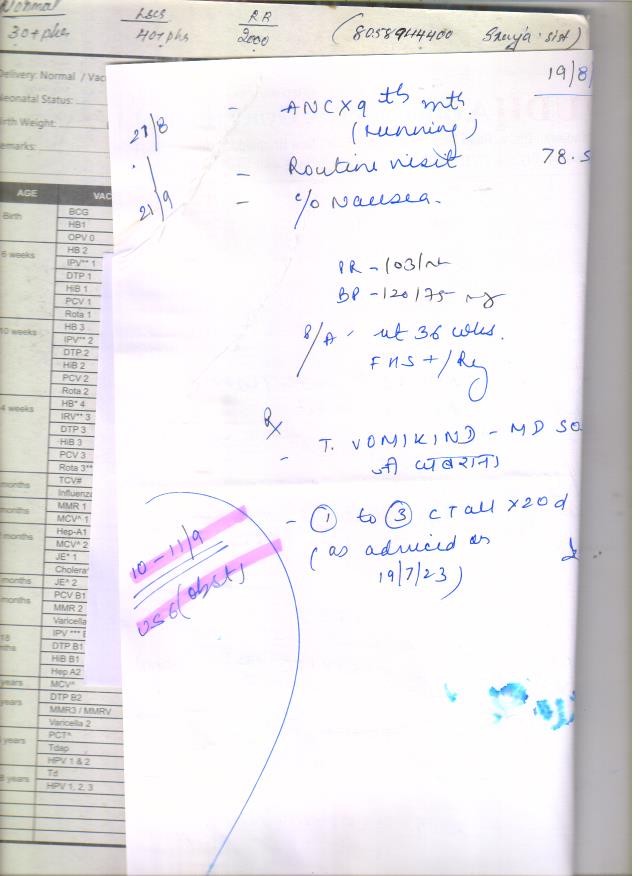 Normal LSCS RR
30+phs 40+phs 2000 (8058944400 Sreeja sist)
Delivery: Normal / Vac
Neonatal Status:
Birth Weight:
emarks:
19/8/
27/8 - ANC X 9th mth.
(running)
- Routine visit 78.5
21/9 - c/o Nausea.
PR - 103/
BP - 120/75
P/A - ut 36 wks.
FHS + / Reg
Rx
- T. VOMIKIND - MD SO
10 - 11/9
USG (obst)
- ① to ③ CT all X 20 d
(as adviced on
19/7/23)
AGE VAC
Birth BCG
HB1
OPV 0
6 weeks HB 2
IPV** 1
DTP 1
HiB 1
PCV 1
Rota 1
10 weeks HB 3
IPV** 2
DTP 2
HiB 2
PCV 2
Rota 2
4 weeks HB* 4
IRV** 3
DTP 3
HiB 3
PCV 3
Rota 3**
months TCV#
Influenza
MMR 1
months MCV^ 1
Hep-A1
months MCV^ 2
JE* 1
Cholera
months JE^ 2
months PCV B1
MMR 2
Varicella
18 IPV ***
nths DTP B1
HiB B1
Hep A2
years MCV^
years DTP B2
MMR3 / MMRV
Varicella 2
years PCT^
Tdap
HPV 1 & 2
8 years Td
HPV 1, 2, 3